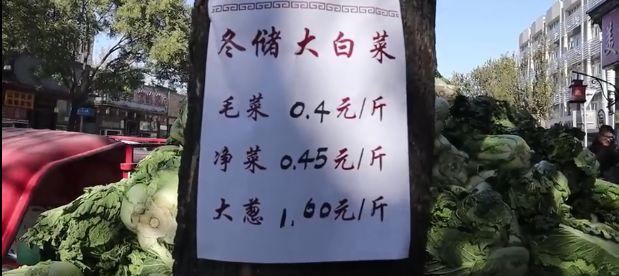 冬储大白菜
毛菜 0.4元/斤
净菜 0.45元/斤
大葱 1.60元/斤